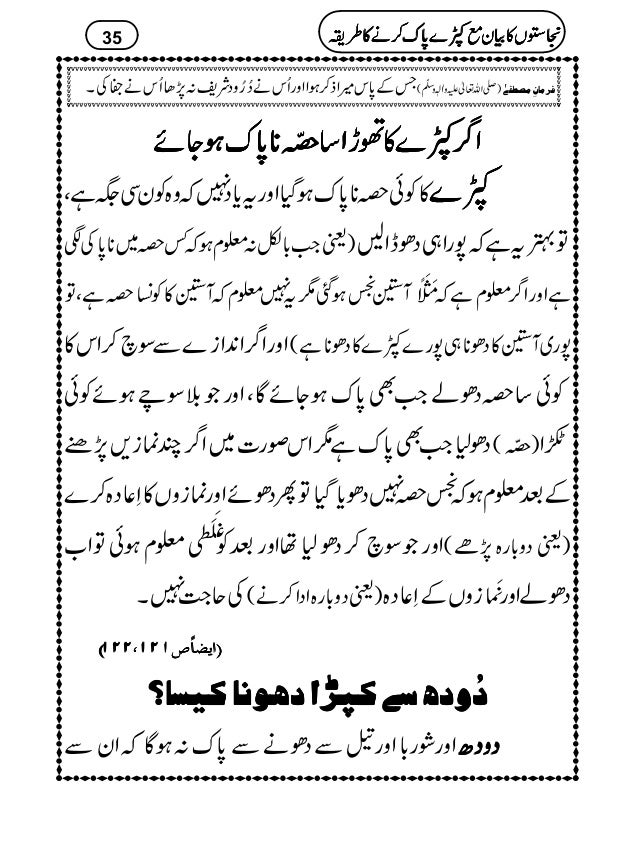 نجاستوں کا بیان مع کپڑے پاک کرنے کا طریقہ
35
فرمانِ مصطفےٰ (صلی اللہ تعالیٰ علیہ والہ وسلّم) جس کے پاس میرا ذکر ہوا اور اُس نے دُرُود شریف نہ پڑھا اُس نے جفا کی ۔
اگر کپڑے کا تھوڑا سا حصّہ ناپاک ہو جائے
کپڑے کا کوئی حصہ ناپاک ہو گیا اور یہ یاد نہیں کہ وہ کون سی جگہ ہے،
تو بہتر یہ ہے کہ پورا ہی دھو ڈالیں (یعنی جب بالکل نہ معلوم ہو کہ کس حصہ میں ناپاکی لگی
ہے اور اگر معلوم ہے کہ مَثَلاً آستین نجس ہو گئی مگر یہ نہیں معلوم کہ آستین کا کونسا حصہ ہے، تو
پوری آستین کا دھونا ہی پورے کپڑے کا دھونا ہے) اور اگر اندازے سے سوچ کر اس کا
کوئی سا حصہ دھولے جب بھی پاک ہو جائے گا، اور جو بلا سوچے ہوئے کوئی
ٹکڑا (حصّہ) دھو لیا جب بھی پاک ہے مگر اس صورت میں اگر چند نمازیں پڑھنے
کے بعد معلوم ہو کہ نجس حصہ نہیں دھویا گیا تو پھر دھوئے اور نمازوں کا اِعادہ کرے
(یعنی دوبارہ پڑھے) اور جو سوچ کر دھو لیا تھا اور بعد کو غَلَطی معلوم ہوئی تو اب
دھولے اور نَمازوں کے اِعادہ (یعنی دوبارہ ادا کرنے) کی حاجت نہیں ۔
(ایضاً ص ۱۲۱، ۱۲۲)
دُودھ سے کپڑا دھونا کیسا؟
دودھ اور شوربا اور تیل سے دھونے سے پاک نہ ہو گا کہ ان سے